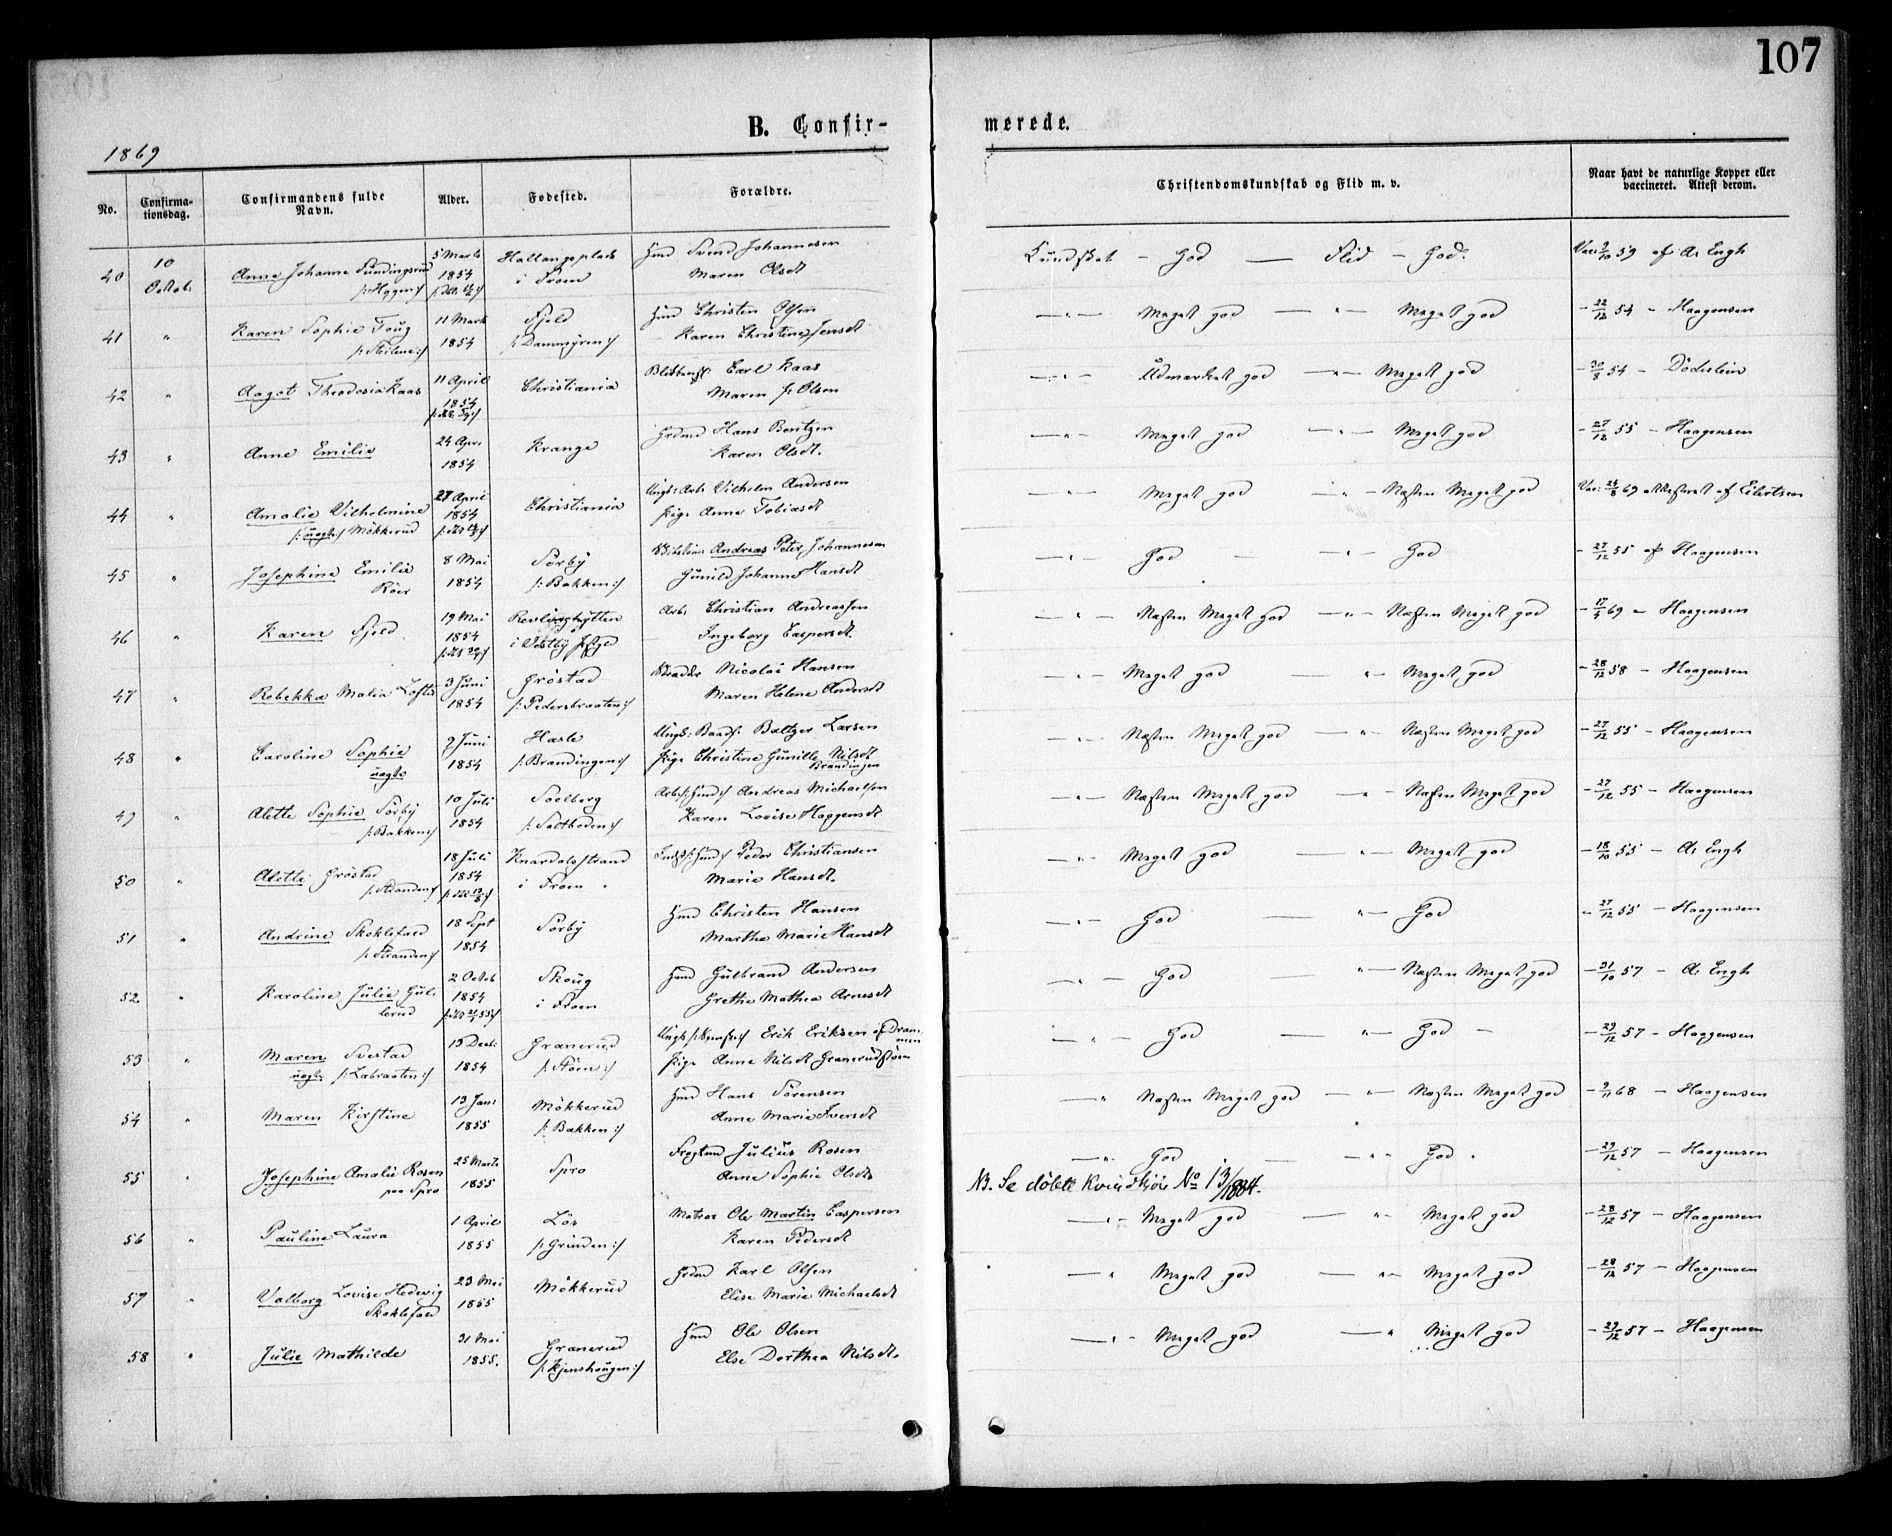 107
B. Confir-
merede.
1869
No.
Confirma-
tionsdag.
Confirmandens fulde
Navn.
Alder.
Fødested.
Forældre.
Christendomskundskab og Flid m. v.
Naar havt de naturlige Kopper eller
vaccineret. Attest derom.
40 10 Octob: Anne Johanne 5 Marts 1854 Hallangsplads i Froen Hmd Svend Johannesen Maren Olsdt Kundskab - God — Flid - God. Vac: 9/10 59 af A. Engh
41 " Karen Sophie Toug /: Steilene :/ 11 Marts 1854 Fjeld /: Dammyren :/ Hmd Christen Olsen Karen Christine Jensdt — " — Meget god — " — Meget god - 22/12 54 - Haagensen
42 " Aagot Theodosia Kaas 11 April 1854 Christiania Carl Kaas Maren f. Olsen — " — Udmærket god — " — Meget god - 30/8 54 - Döderlein
43 " Anne Emilie 24 Apri 1854 Krange Grdmd Hans Bentzen Karen Olsdt. — " — Meget god — " — Meget god - 27/12 55 - Haagensen
44 " Amalie Vilhelmine /: uægte :/ Mökkerud 27 April 1854 Christiania Ungk: Arb: Vilhelm Andersen Pige Anne Tobiasdt — " — Meget god — " — Næsten Meget god Vac: 24/8 69 attesteret af Eilertsen
45 " Josephine Emilie Röer 8 Mai 1854 Sørby /: Bakken :/ Andreas Peter Johannesen Gunild Johanne Hansdt — " — God — " — God - 27/12 55 af Haagensen
46 " Karen Fjeld 19 Mai 1854 i Vestby Arb: Christian Andreassen Ingeborg Caspersdt. — " — Næsten Meget god — " — Næsten Meget god - 17/4 69 - Haagensen
47 " Rebekka Malia 3 Juni 1854 Gröstad /: Pedersbraaten :/ Nicolai Hansen Maren Helene Andersdt — " — Meget god — " — Meget god - 28/12 58 - Haagensen
48 " Caroline Sophie uægte 9 Juni 1854 Hasle /: Brandingen :/ Ungk: Baltzer Larsen Pige Christine Gunille Nilsdt Brandingen — " — Næsten Meget god — " — Næsten Meget god - 27/12 55 - Haagensen
49 " Alette Sophie Sørby /: Bakken :/ 10 Juli 1854 Soelberg /: Saltboden :/ Arb: /: Hmd :/ Andreas Michaelsen Karen Lovise Haagensdt — " — Næsten Meget god — " — Næsten Meget god - 27/12 55 - Haagensen
50 " Alette Gröstad /: Stranden :/ 18 Juli 1854 Knardalsstrand i Froen Peder Christiansen Marie Hansdt. — " — Meget god — " — Meget god - 18/10 55 - A. Engh
51 " Andrine Skoklefald /: Stranden :/ 18 Sept 1854 Sørby Hmd Christen Hansen Marthe Marie Hansdt — " — God — " — God - 27/12 55 - Haagensen
52 " Karoline Julie Gulllerud 2 Octob 1854 Skoug i Froen Hmd Gulbrand Andersen Grethe Mathea Arnesdt — " — God " — Næsten Meget god - 31/10 57 - A. Engh
53 " Maren Svestad uægte /: Labraaten :/ 15 Dec: 1854 Granerud /: Støen :/ Erik Eriksen af Drammen Pige Anne Nilsdt Granerudstøen — " — God — " — God - 29/12 57 - Haagensen
54 " Maren Kirstine 13 Jan: 1855 Mökkerud /: Bakken :/ Hmd Hans Sørensen Anne Marie Iversdt — " Næsten Meget god — " — Næsten Meget god - 9/11 68 - Haagensen
55 " Josephine Amalie Rosen paa Spro 25 Marts 1855 Spro Julius Rosen Anne Sophie Olsdt — " — God — " — God - 29/12 57 - Haagensen
NB. Se döbte Kvindkjön No 13/1884.
56 " Pauline Laura 1 April 1855 Lös /: Grinden :/ Matros Ole Martin Caspersen Karen Pedersdt — " — Meget god — " — Meget god - 28/12 57 - Haagensen
57 " Valborg Lovise Hedevig Skoklefald 23 Mai 1855 Mökkerud Grdmd Karl Olsen Elise Marie Michaelsdt — " Meget god — " — Meget god - 28/12 57 - Haagensen
58 " Julie Mathilde 31 Mai 1855. Granerud /: Kjenshougen :/ Hmd Ole Olsen Else Dorthea Nilsdt. — " — Meget god — " Meget god - 29/12 57 - Haagensen